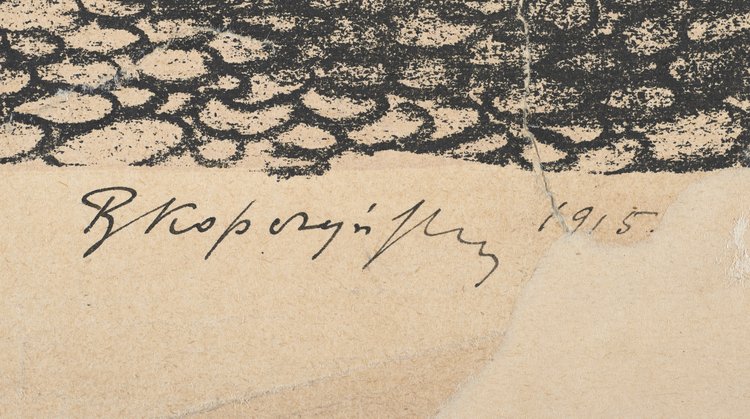 B Kopczyński 1915.